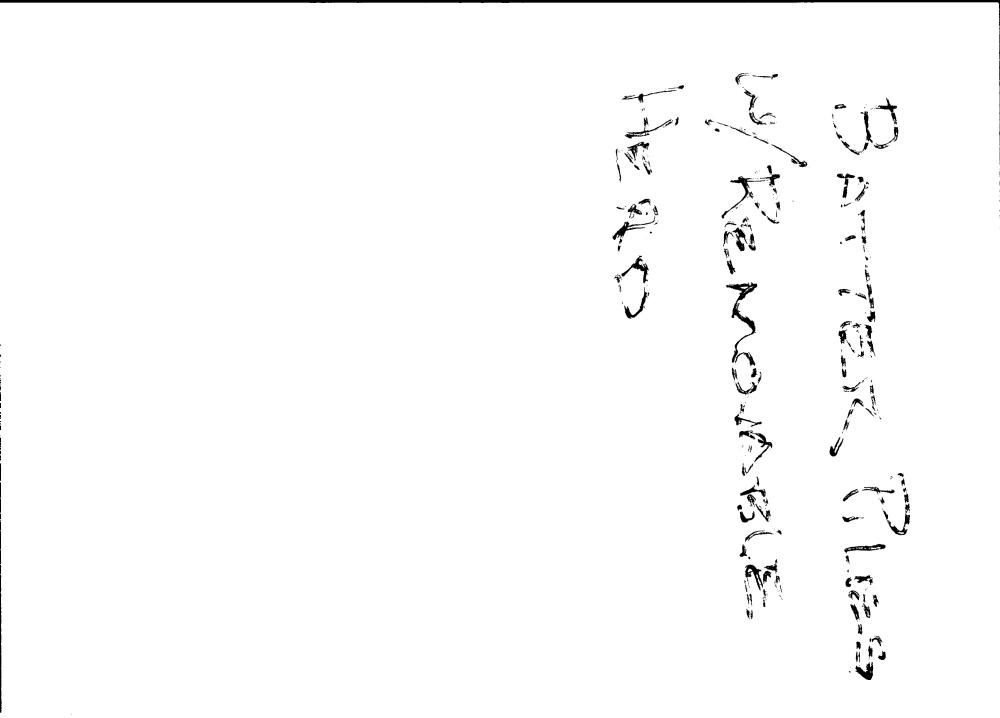 BATTER PILES
W/ REMOVABLE
HEAD